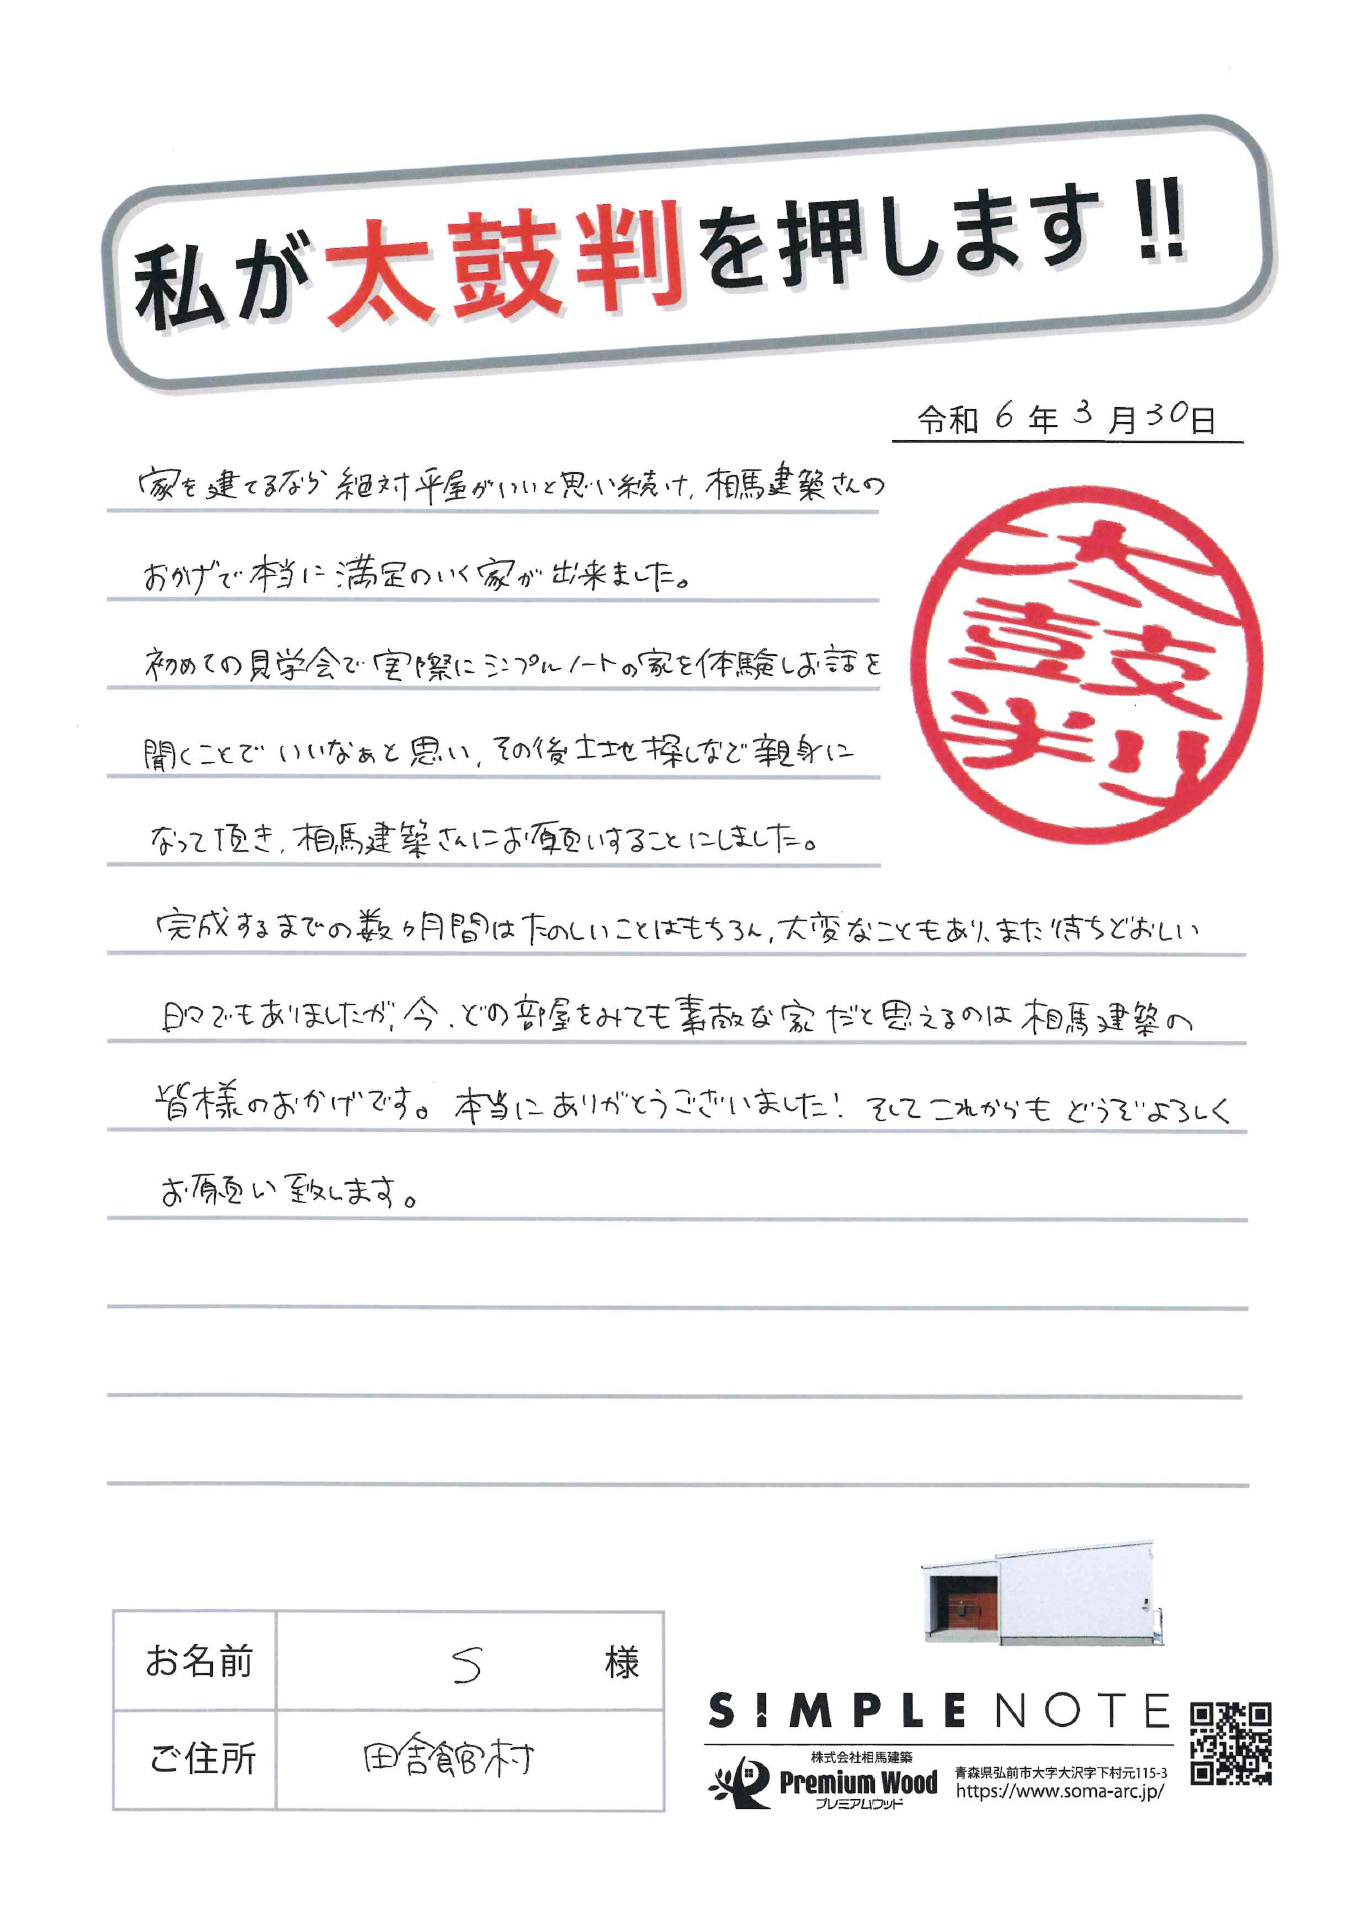 私が太鼓判を押します!!
令和6年3月30日
家を建てるなら絶対平屋がいいと思い続け、相馬建築さんの
おかげで本当に満足のいく家が出来ました。
初めての見学会で実際にシンプルノートの家を体験しお話を
聞くことでいいなぁと思い、その後土地探しなど親身に
なって頂き、相馬建築さんにお願いすることにしました。
太鼓判
完成するまでの数ヶ月間はたのしいことはもちろん、大変なこともあり、また待ちどおしい
日々でもありましたが、今、どの部屋をみても素敵な家だと思えるのは相馬建築の
皆様のおかげです。本当にありがとうございました! そしてこれからもどうぞよろしく
お願い致します。
お名前 S 様
ご住所 田舎館村
SIMPLE NOTE
株式会社相馬建築
Premium Wood
プレミアムウッド
青森県弘前市大字大沢字下村元115-3
https://www.soma-arc.jp/